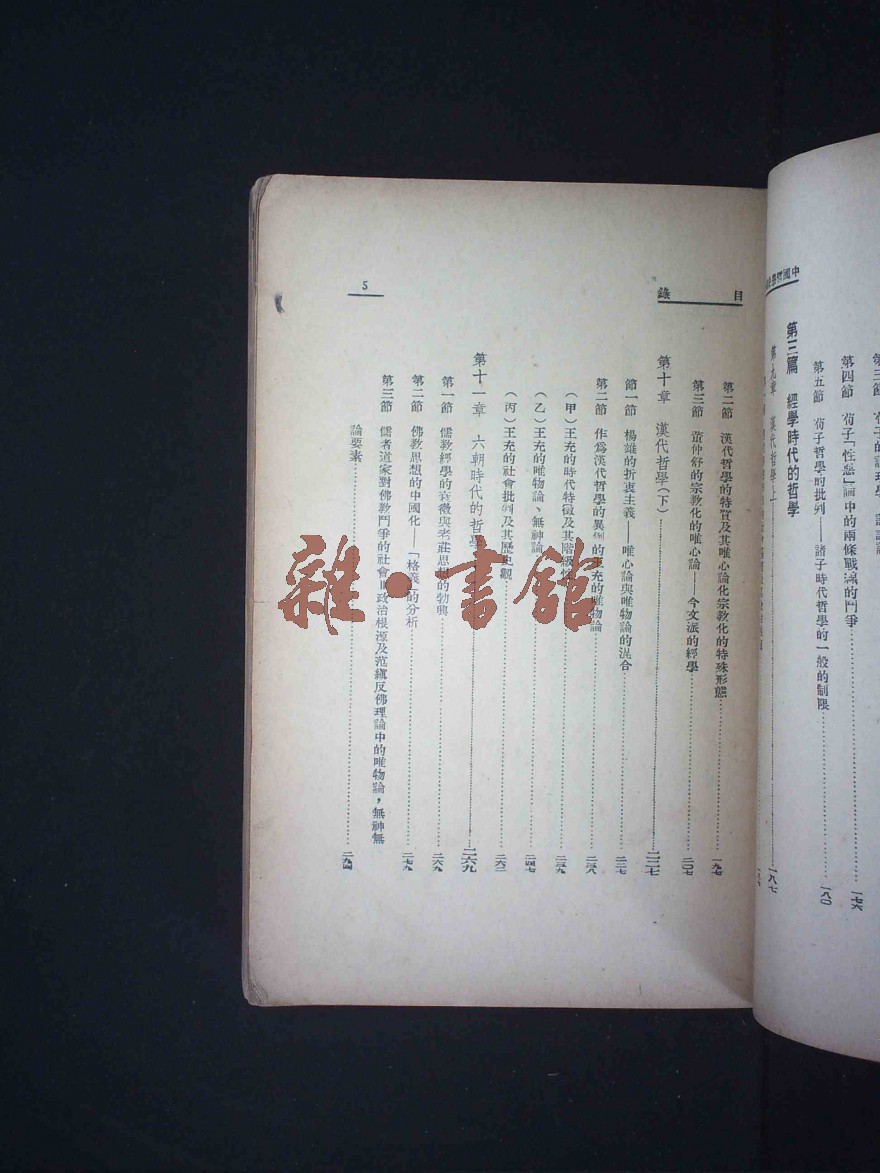 中國哲學史
第四節　荀子「性惡」論中的兩條戰線的鬥爭……一七六
第五節　荀子哲學的批判——諸子時代哲學的一般的制限……一八〇
第三篇　經學時代的哲學
第九章　漢代哲學(上)……一八七
目錄
第二節　漢代哲學的特質及其唯心論化宗教化的特殊形態……一九七
第三節　董仲舒的宗教化的唯心論——今文派的經學……二〇七
第十章　漢代哲學(下)……二二七
第一節　楊雄的折衷主義——唯心論與唯物論的混合……二二七
第二節　作爲漢代哲學的異例的王充的唯物論……二三八
(甲)王充的時代特徵及其階級性……二三九
(乙)王充的唯物論、無神論……二四七
(丙)王充的社會批判及其歷史觀……二六二
第十一章　六朝時代的哲學……二六九
第一節　儒教經學的衰微與老莊思想的勃興……二六九
第二節　佛教思想的中國化——「格義」的分析……二七九
第三節　儒者道家對佛教鬥爭的社會政治根源及范縝反佛理論中的唯物論，無神無
論要素……二九四
5
雜·書館